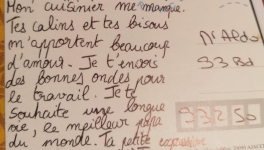 Mon cuisinier me manque.
Tes calins et tes bisous
m'apportent beaucoup
d'amour. Je t'envois
des bonnes ondes pour
le travail. Je te
souhaite une longue
vie, le meilleur papa
du monde. Ta petite
Mr Aldo
33 Bd
33250